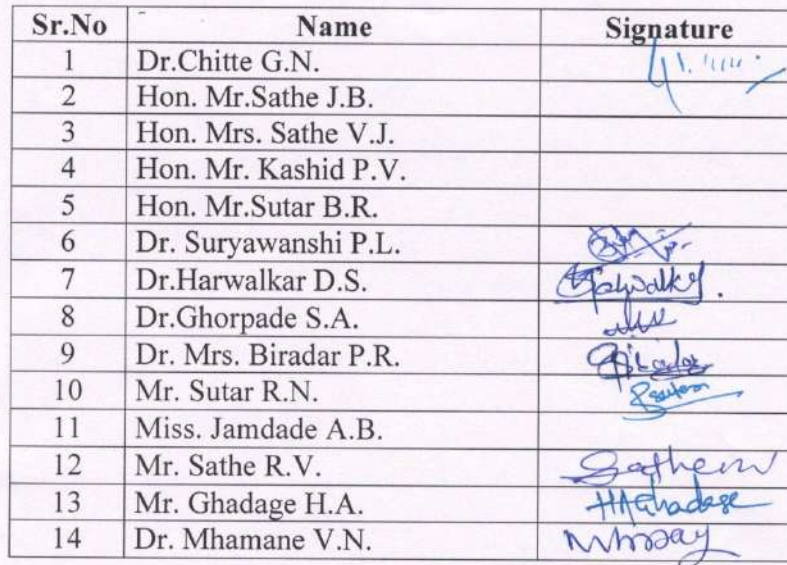 Sr.No Name Signature
1 Dr.Chitte G.N.
2 Hon. Mr.Sathe J.B.
3 Hon. Mrs. Sathe V.J.
4 Hon. Mr. Kashid P.V.
5 Hon. Mr.Sutar B.R.
6 Dr. Suryawanshi P.L.
7 Dr.Harwalkar D.S.
8 Dr.Ghorpade S.A.
9 Dr. Mrs. Biradar P.R.
10 Mr. Sutar R.N.
11 Miss. Jamdade A.B.
12 Mr. Sathe R.V.
13 Mr. Ghadage H.A. HAGhadage
14 Dr. Mhamane V.N.